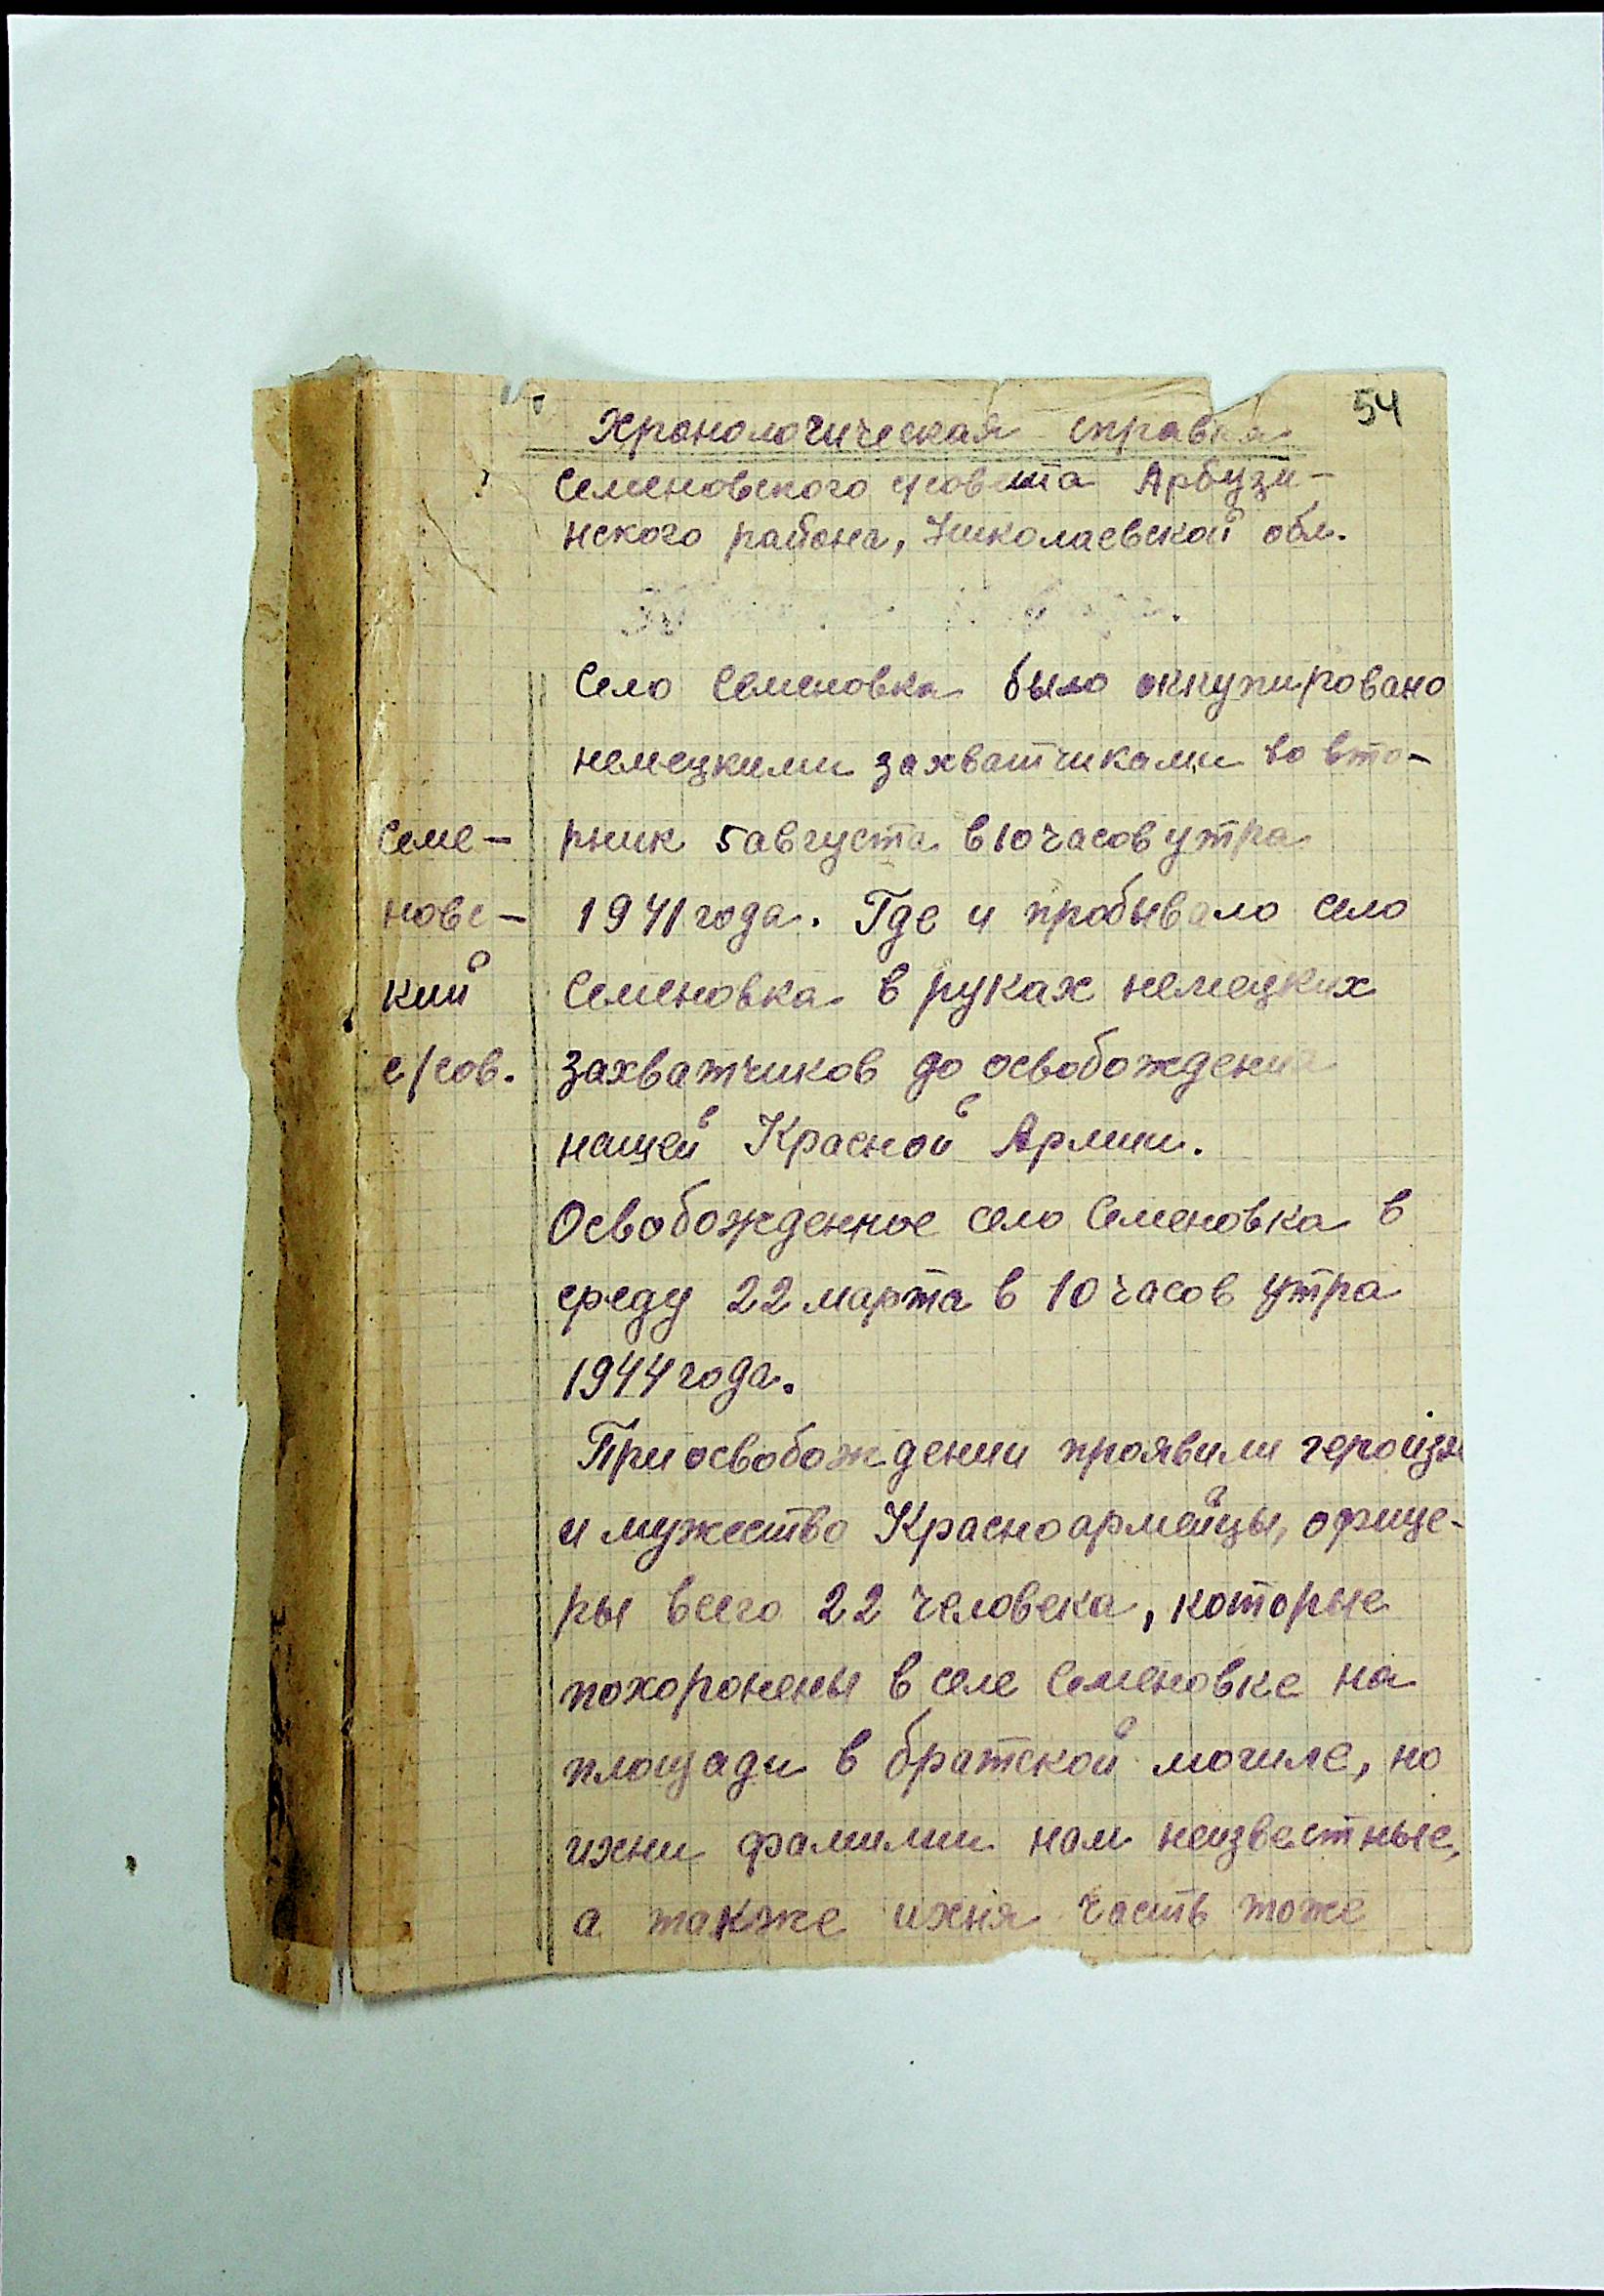 54
Хронологическая справка
Семеновского с/совета Арбузи-
нского района, Николаевской обл.
Село Семеновка было оккупировано
немецкими захватчиками во вто-
рник 5 августа в 10 часов утра
1941 года. Где и пробывало село
Семеновка в руках немецких
захватчиков до освобождения
нашей Красной Армии.
Освобожденное село Семеновка в
среду 22 марта в 10 часов утра
1944 года.
При освобождении проявили героізм
и мужество Красноармейцы, офице-
ры всего 22 человека, которые
похоронены в селе Семеновке на
площади в братской могиле, но
ихни фамилии нам неизвестные,
а также ихня часть тоже
Семе-
новс-
кий
с/сов.